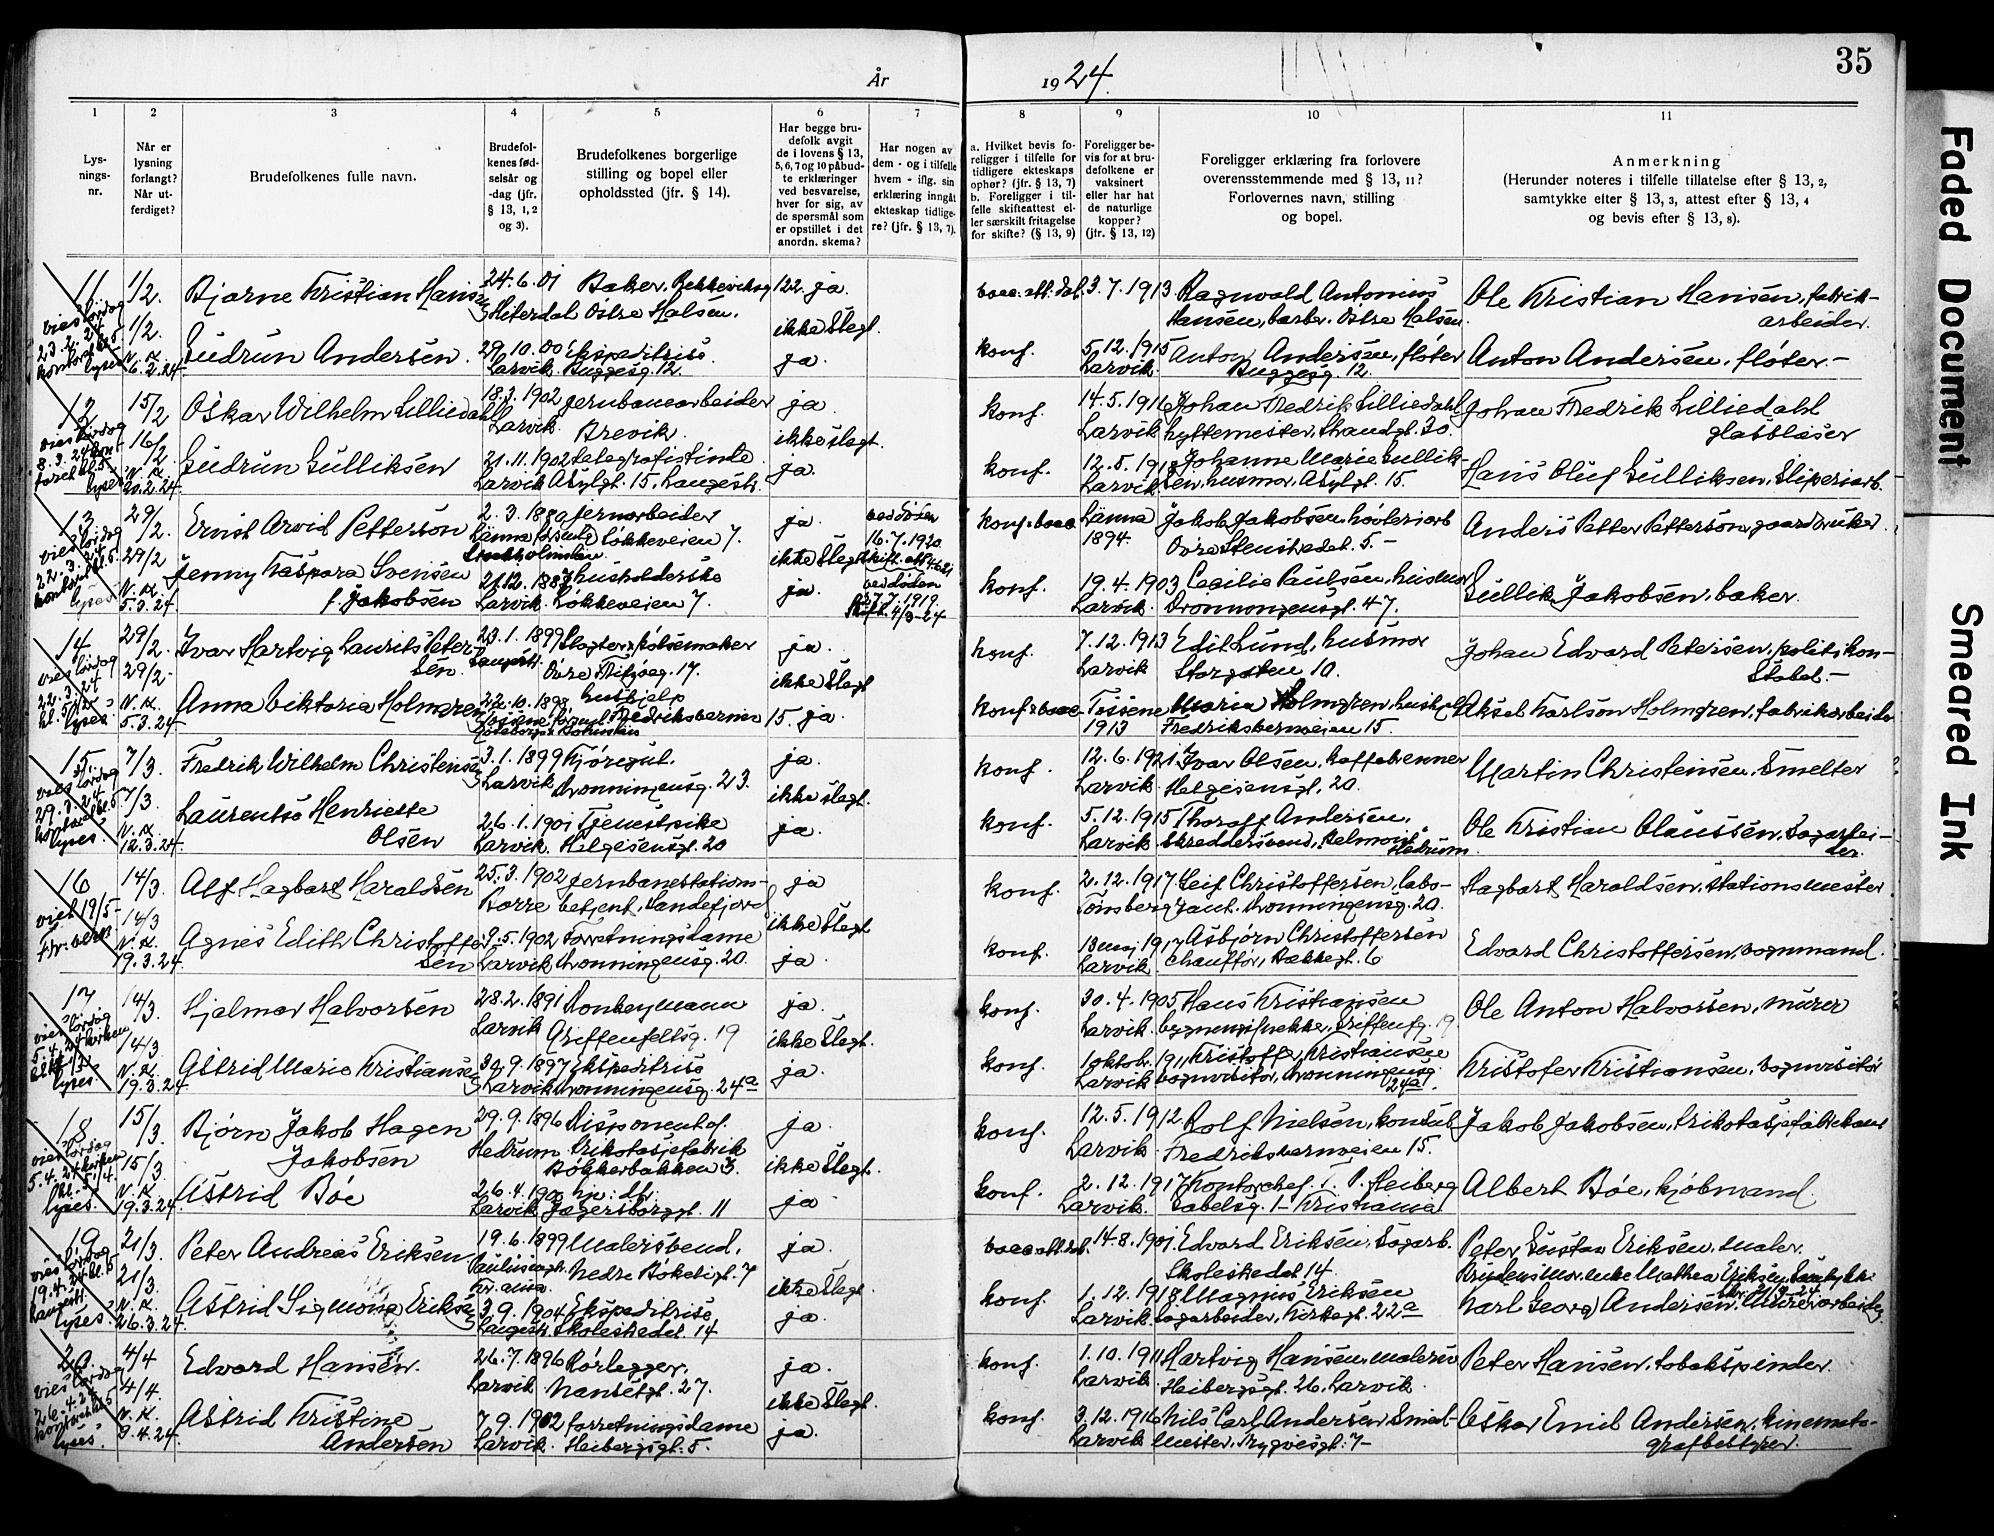 35
År
19 24.
1
2
3
4
5
6
7
8
9
10
11
Lys-
nings-
nr.
Når er
lysning
forlangt?
Når ut-
ferdiget?
Brudefolkenes fulle navn.
Brudefol-
kenes fød-
selsår og
-dag (jfr.
§ 13, 1, 2
og 3).
Brudefolkenes borgerlige
stilling og bopel eller
opholdssted (jfr. § 14).
Har begge bru-
defolk avgit
de i lovens § 13,
5, 6, 7 og 10 påbud-
te erklæringer
ved besvarelse,
hver for sig, av
de spørsmål som
er opstillet i det
anordn. skema?
Har nogen av
dem - og i tilfelle
hvem - iflg. sin
erklæring inngåt
ekteskap tidlige-
re? (jfr. § 13, 7).
a. Hvilket bevis fo-
religger i tilfelle for
tidligere ekteskaps
ophør? (jfr. § 13, 7)
b. Foreligger i til-
felle skifteattest el-
ler særskilt fritagelse
for skifte? (§ 13, 9)
Foreligger be-
vis for at bru-
defolkene er
vaksinert
eller har hat
de naturlige
kopper?
(jfr. § 13, 12)
Foreligger erklæring fra forlovere
overensstemmende med § 13, 11?
Forlovernes navn, stilling
og bopel.
Anmerkning
(Herunder noteres i tilfelle tillatelse efter § 13, 2,
samtykke efter § 13, 3, attest efter § 13, 4
og bevis efter § 13, 8).
11
1/2.
Bjarne Kristian Hansen
24.6.01
Hiterdal
Baker,
Østre Halsen.
122. ja.
ikke slegt.
3.7.1913
Ragnvald Antonius
Hansen, barber. Østre Halsen.
Ole Kristian Hansen, fabrik-
arbeider.
1/2.
6.2.24.
Gudrun Andersen.
29.10.00
Larvik
Ekspeditrise
Buggesg. 12.
ja
konf.
5.12.1915
Larvik
Anton Andersen, fløter
Buggesg. 12.
Anton Andersen, fløter.-
12
15/2
Oskar Wilhelm Lilliedahl
18.3.1902
Larvik.
jernbanearbeider
Brevik.
ja.
ikke slegt.
konf.
14.5.1916
Larvik
Johan Fredrik Lilliedahl
hyttemester, Strandgt. 30.
Johan Fredrik Lilliedahl
glasblåser
16/2
20.2.24.
Gudrun Gulliksen
21.11.1902
Larvik
telegrafistinde
Asylgt. 15. Langestr.
ja.
konf.
Larvik
Johanne Marie Gullik-
sen, husmor, Asylgt. 15.
Hans Oluf Gulliksen, Sliperiarb.
13
29/2
Ernst Arvid Petterson
2.3.1889
Länna
Jernarbeider
Løkkeveien 7.
ja.
ikke slegt
ved døden
16.7.1920
konf. & vacc
Länna
1894.
Jakob Jakobsen, høvleriarb
Øvre Stenskedet. 5.-
Anders Petter Petterson, gaardbruker.
29/2
5.3.24.
Jenny Kaspara Svensen
f. Jakobsen
21.12.1887
Larvik.
husholderske
Løkkeveien 7.
ja.
ved døden
27.7.1919.
Skift. 4/3-24
konf.
19.4.1903
Larvik.
Cecilie Paulsen, husmor
Dronningensgt. 47.
Gullik Jakobsen, baker.
14
29/2.
Ivar Hartvig Laurits Peter-
sen.
23.1.1899
Langestr.
Slagter & Pølsemaker
17.
ja.
ikke slegt
konf.
7.12.1913
Larvik
Edit Lund, husmor
Storgaten 10.
Johan Edvard Petersen, politikon-
stabel.-
29/2
5.3.24.
Anna Viktoria Holmgren
hushjelp
Fredriksvernsv.
15. ja.
konf & vacc
Tossene
1913
Maria Holmgren, hushjelp
Fredriksvernveien 15.
Aksel Karlson Holmgren, fabrikarbeider
15.
7/3.
Fredrik Wilhelm Christensen
3.1.1899
Larvik
Dronningensg. 23.
ja.
ikke slegt.
konf.
12.6.1921
Larvik.
Ivar Olsen, kaffebrenner
Helgesensgt. 20.
Martin Christensen, Smelter
7/3.
12.3.24.
Laurentse Henriette
Olsen
26.1.1901
Larvik.
Tjenestpike
Helgesensgt. 20
ja.
konf.
5.12.1915
Larvik
Thoralf Andersen,
skreddersvend,
Hedrum.
Ole Kristian Olaussen, Sagarbei-
der.
16
14/3.
Alf Hagbart Haraldsen
25.3.1902
Borre
jernbanestations-
betjent, Sandefjord
ja
ikke slegt
konf.
2.12.1917
Tønsberg
Leif Christoffersen, labo-
rant. Dronningensg. 20.
Hagbart Haraldsen, stationsmester
viet 19/5-
14/3
19.3.24.
Agnes Edith Christoffer-
sen
9.5.1902
Larvik
Forretningsdame
Dronningensg. 20.
ja.
konf.
13 mai 1917
Larvik.
Asbjørn Christoffersen
chauffør, Bakkegt. 6
Edvard Christoffersen, vognmand.
17
14/3.
Hjalmar Halvorsen
28.2.1891
Larvik
Donkeymann
Griffenfeltsg. 19
ja.
ikke slegt.
konf.
30.4.1905
Larvik.
Hans Kristiansen
19
Ole Anton Halvorsen, murer
14/3.
19.3.24.
Astrid Marie Kristiansen
30.9.1897
Larvik
Ekspeditrise
Dronningensg. 24a
ja.
konf.
1 oktob. 1911
Larvik
Kristoffer Kristiansen
vognvisitør, Dronningensg.
24a.
Kristofer Kristiansen, vognvisitør
18
15/3.
Bjørn Jakob Hagen
Jakobsen
29.9.1896
Hedrum
Disponent af
Trikotasjefabrik
Bøkkerbakken 3.
ja.
ikke slegt.
konf.
12.5.1912
Larvik.
Rolf Nielsen, konsul
Fredriksvernveien 15.
Jakob Jakobsen, trikotasjefabrikant
15/3.
19.3.24.
Astrid Bøe
26.4.1900
Larvik.
Jegersborggt. 11
ja
konf.
2.12.1917
Larvik.
Kontorchef T. P. Heiberg
Sabelsg. 1- Kristiania
Albert Bøe, kjøbmand.
19
21/3.
Peter Andreas Eriksen
19.6.1899
Malersvend.
Nedre Bøkeligt. 7
ja.
ikke slegt.
14.8.1901
Edvard Eriksen, Sagarb.
Skoleskedet 14.
Peter Gustav Eriksen, maler.
21/3.
26.3.24.
Astrid Sigmona Eriksen
3.9.1904
Langestr.
Ekspeditrise
Skoleskedet. 14
ja.
konf.
1.12.1918
Larvik.
Magnus Eriksen
Sagarbeider, Kirkegt. 22a
Karl Georg Andersen, Murerarbeider
20.
4/4
Edvard Hansen.
26.7.1896
Larvik.
Rørlegger.
Nansetgt. 27.
ja.
ikke slegt.
konf.
1.10.1911
Larvik.
Hartvig Hansen, malersv
Heibergsgt. 26. Larvik.
Peter Hansen, tobakspinder.
4/4.
9.4.24.
Astrid Kristine
Andersen
7.9.1902
Larvik.
forretningsdame
Heibergsgt. 5.
ja.
konf.
3.12.1916
Larvik
Nils Carl Andersen, Smed-
mester, Trygvesgt. 7-
Oskar Emil Andersen, kinemato-
grafbestyrer.
Faded Document
Smeared Ink